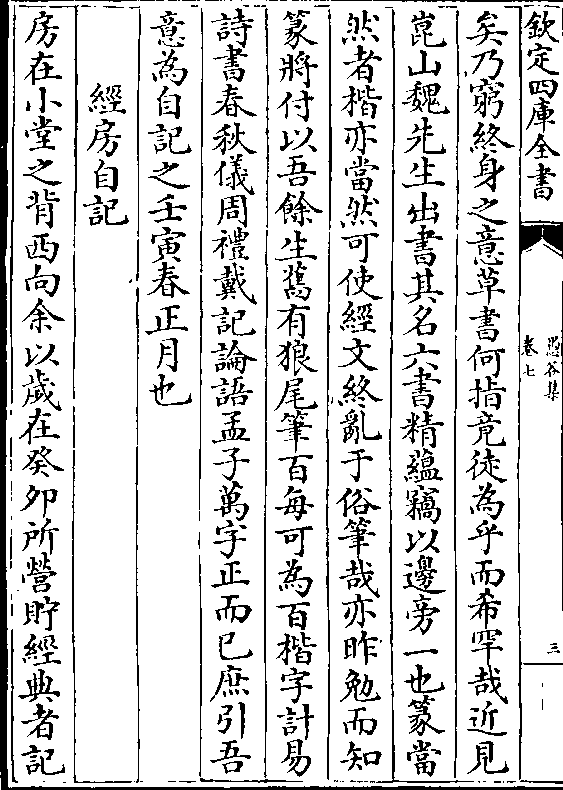 欽定四庫全書
愚谷集
卷七
三
矣乃窮終身之意草書何指竟徒為乎而希罕哉近見
崑山魏先生出書其名六書精蘊竊以邊旁一也篆當
然者楷亦當然可使經文終亂于俗筆哉亦昨勉而知
篆將付以吾餘生舊有狼尾筆百每可為百楷字計易
詩書春秋儀周禮戴記論語孟子萬字正而已庶引吾
意為自記之壬寅春正月也
經房自記
房在小堂之背西向余以歲在癸夘所營貯經典者記